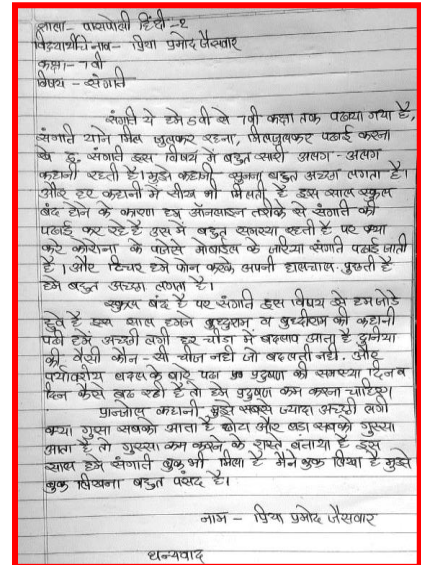 शाला- पासपोली हिंदी -२
विद्यार्थीचे नाव- प्रिया प्रमोद जैसवार
कक्षा- ७वी
विषय - संगति
संगति ये हमे ५वी से ७वी कक्षा तक पढाया गया है,
संगति याने मिल जुलकर रहना, मिलजुलकर पढाई करना
ये है. संगति इस विषय में बहुत सारी अलग-अलग
कहानी रहती है। मुझे कहानी सुनना बहुत अच्छा लगता है।
और हर कहानी में सीख भी मिलती है इस साल स्कूल
बंद होने के कारण हम ऑनलाइन तरीके से संगति की
पढाई कर रहे है उस में बहुत समस्या रहती है पर क्या
करे कोरोना के वजेसे मोबाईल के जरिया संगति पढाई जाती
है। और टिचर हमे फोन करके अपनी हालचाल पुछती है
हमे बहुत अच्छा लगता है।
स्कूल बंद है पर संगति इस विषय से हम जोडे
हुवे है इस साल हमने बुध्दुराम व बुध्दीराम की कहानी
पढी हमें अच्छी लगी हर चीज में बदलाव आता है दुनिया
की वैसी कौन-सी चीज नही जो बदलती नही. और
पर्यावरीय बदल के बारे पढा प्रदुषण की समस्या दिन व
दिन कैसे बढ रही है तो हमे प्रदुषण कम करना चाहिए।
कहानी मुझे सबसे ज्यादा अच्छी लगी
क्या गुसा सबको आता है छोटा और बडा सबको गुस्सा
आता है तो गुस्सा कम करने के रास्ते बताया है इस
साल हमे संगति बुक भी मिला है मैने बुक लिखा है मुझे
बुक लिखना बहुत पसंद है।
नाम - प्रिया प्रमोद जैसवार
धन्यवाद